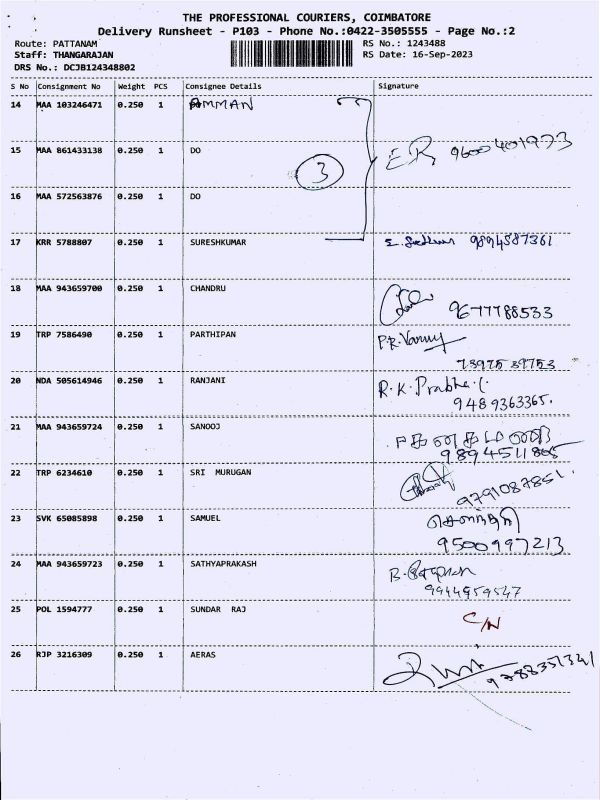 THE PROFESSIONAL COURIERS, COIMBATORE
Delivery Runsheet - P103 - Phone No.:0422-3505555 - Page No.:2
Route: PATTANAM RS No.: 1243488
Staff: THANGARAJAN RS Date: 16-Sep-2023
DRS No.: DCJB124348802
S No Consignment No Weight PCS Consignee Details Signature
14 MAA 103246471 0.250 1 AMMAN
15 MAA 861433138 0.250 1 DO 3 ER 9600401973
16 MAA 572563876 0.250 1 DO
17 KRR 5788807 0.250 1 SURESHKUMAR 9894587361
18 MAA 943659700 0.250 1 CHANDRU
9677788533
19 TRP 7586490 0.250 1 PARTHIPAN P.R.
7397539753
20 NDA 505614946 0.250 1 RANJANI R.K.
9489363365.
21 MAA 943659724 0.250 1 SANOOJ
9894511805
22 TRP 6234610 0.250 1 SRI MURUGAN
9791087851.
23 SVK 65085898 0.250 1 SAMUEL
9500997213
24 MAA 943659723 0.250 1 SATHYAPRAKASH B.
9944959547
25 POL 1594777 0.250 1 SUNDAR RAJ C/N
26 RJP 3216309 0.250 1 AERAS